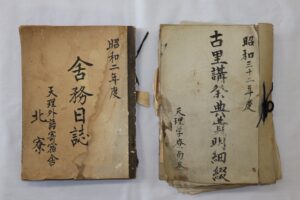 昭和二年度
舍務日誌
天理外語寄宿舎
北寮
昭和三十二年度
古里講祭典費明細綴
天理学寮南寮